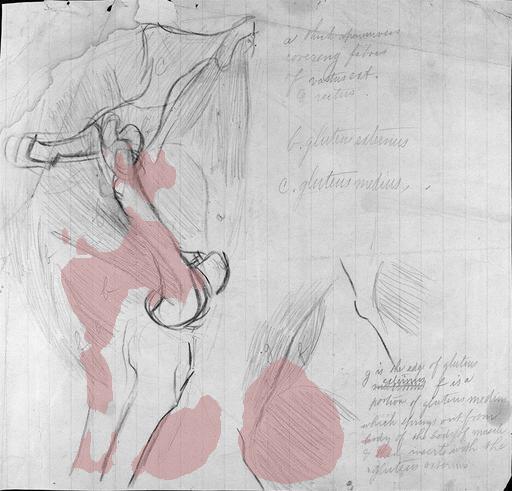 a thick aponeurosis
covering fibres
of vastus ext.
& rectus.
b. gluteus externus
c. gluteus medius.
g is the edge of gluteus
f is a
portion of gluteus medius
which springs out from
body of the body of muscle
& inserts with the
gluteus externus